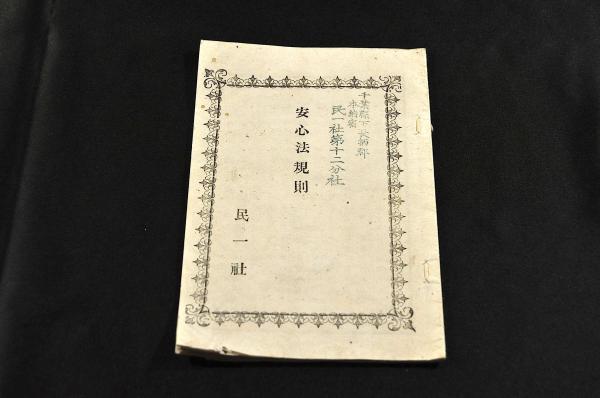 千葉縣下長柄郡
本納宿
民一社第十二分社
安心法規則
民一社